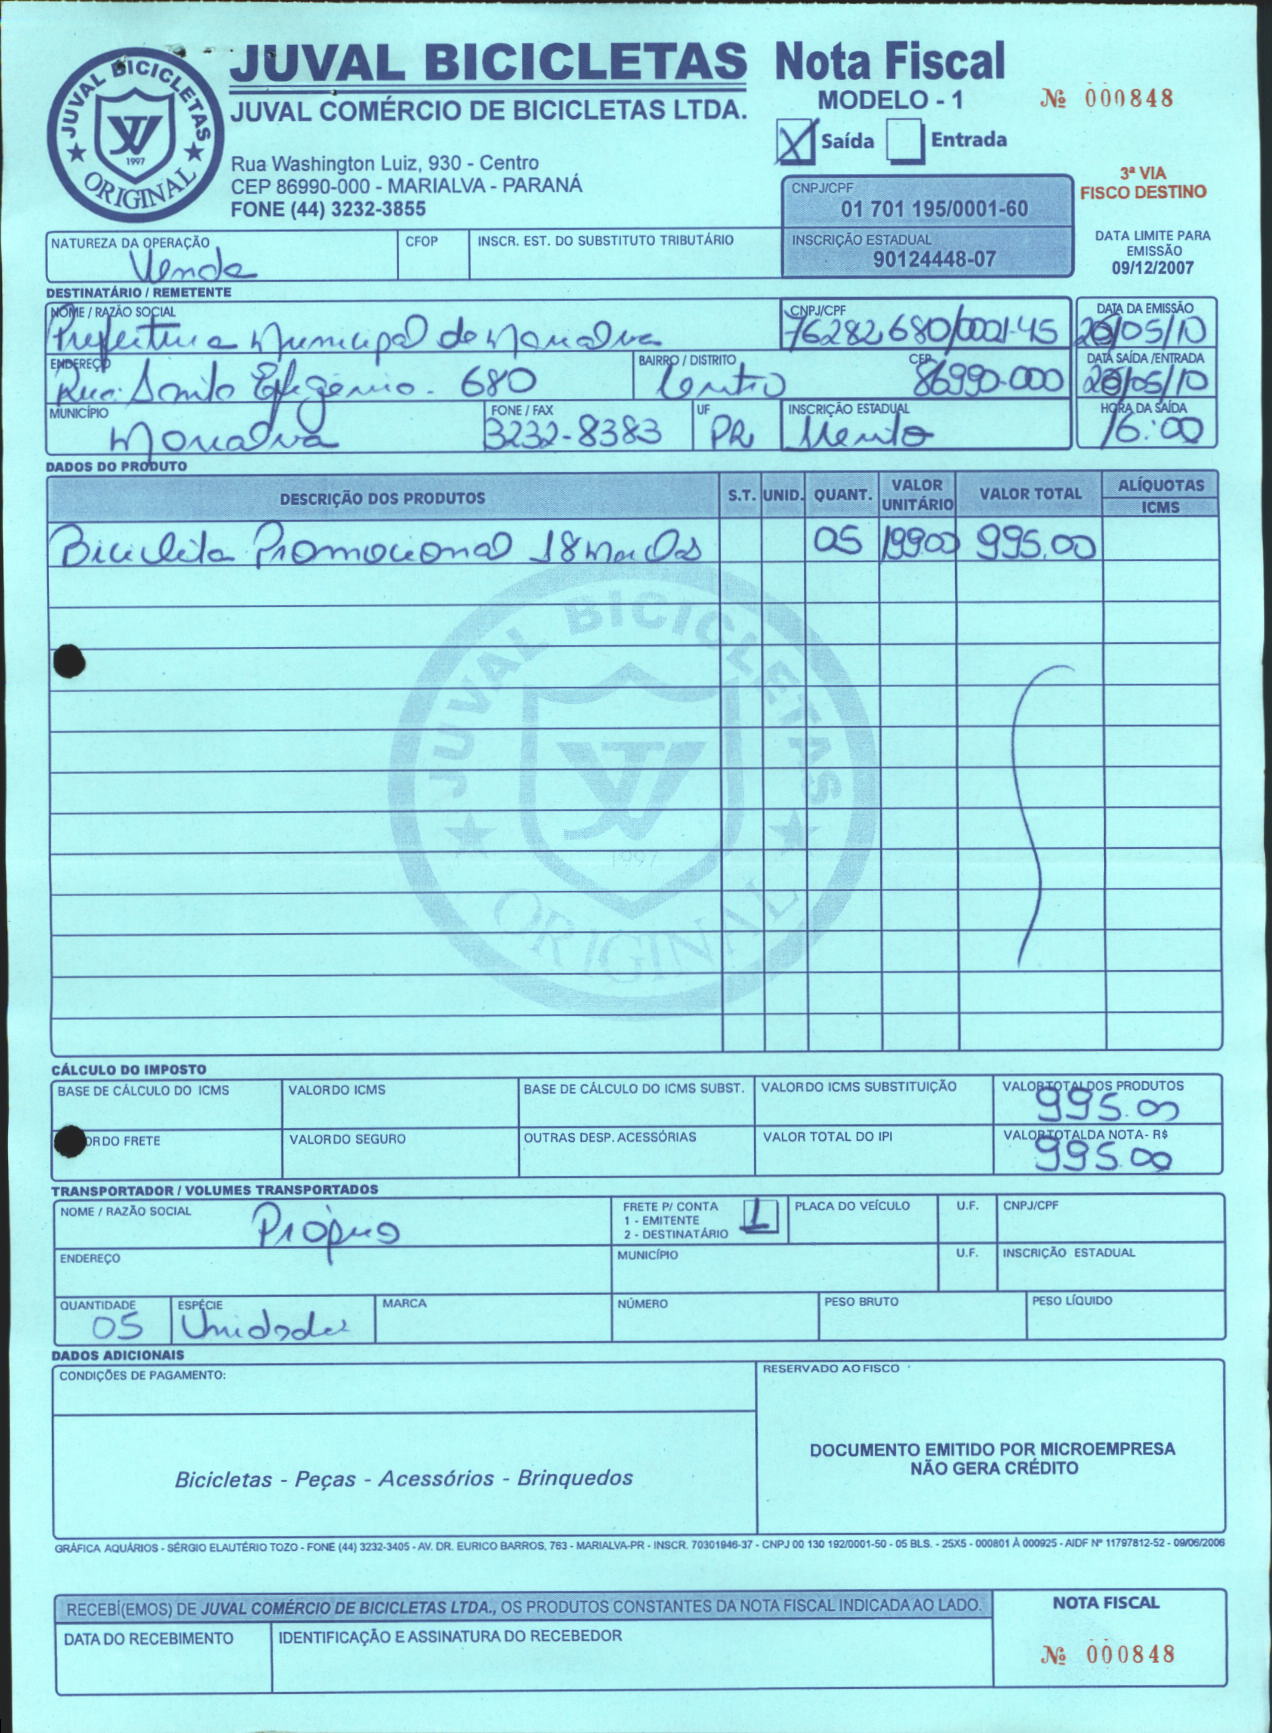 JUVAL BICICLETAS
JUVAL COMÉRCIO DE BICICLETAS LTDA.
Rua Washington Luiz, 930 - Centro
CEP 86990-000 - MARIALVA - PARANÁ
FONE (44) 3232-3855
JUVAL BICICLETAS
1997
ORIGINAL
Nota Fiscal
MODELO - 1
Nº 000848
X Saída Entrada
3ª VIA
FISCO DESTINO
CNPJ/CPF
01 701 195/0001-60
INSCRIÇÃO ESTADUAL
90124448-07
DATA LIMITE PARA
EMISSÃO
09/12/2007
NATUREZA DA OPERAÇÃO CFOP INSCR. EST. DO SUBSTITUTO TRIBUTÁRIO
Venda
DESTINATÁRIO / REMETENTE
NOME / RAZÃO SOCIAL CNPJ/CPF DATA DA EMISSÃO
Prefeitura Municipal de Marialva 76282680/0001-45 /05/10
ENDEREÇO BAIRRO / DISTRITO CEP DATA SAÍDA /ENTRADA
Rua: Santa Efigênia - 680 Centro 86990-000 /05/10
MUNICÍPIO FONE / FAX UF INSCRIÇÃO ESTADUAL HORA DA SAÍDA
Marialva 3232-8383 PR 16:00
DADOS DO PRODUTO
DESCRIÇÃO DOS PRODUTOS S.T. UNID. QUANT. VALOR UNITÁRIO VALOR TOTAL ALÍQUOTAS ICMS
Bicicleta Promocional 18 Marchas 05 199.00 995.00
JUVAL BICICLETAS
1997
ORIGINAL
CÁLCULO DO IMPOSTO
BASE DE CÁLCULO DO ICMS VALOR DO ICMS BASE DE CÁLCULO DO ICMS SUBST. VALOR DO ICMS SUBSTITUIÇÃO VALOR TOTAL DOS PRODUTOS
995.00
OR DO FRETE VALOR DO SEGURO OUTRAS DESP. ACESSÓRIAS VALOR TOTAL DO IPI VALOR TOTAL DA NOTA - R$
995.00
TRANSPORTADOR / VOLUMES TRANSPORTADOS
NOME / RAZÃO SOCIAL FRETE P/ CONTA PLACA DO VEÍCULO U.F. CNPJ/CPF
Próprio 1 - EMITENTE 1
2 - DESTINATÁRIO
ENDEREÇO MUNICÍPIO U.F. INSCRIÇÃO ESTADUAL
QUANTIDADE ESPÉCIE MARCA NÚMERO PESO BRUTO PESO LÍQUIDO
05 Unidades
DADOS ADICIONAIS
CONDIÇÕES DE PAGAMENTO: RESERVADO AO FISCO
DOCUMENTO EMITIDO POR MICROEMPRESA
NÃO GERA CRÉDITO
Bicicletas - Peças - Acessórios - Brinquedos
GRÁFICA AQUÁRIOS - SÉRGIO ELAUTÉRIO TOZO - FONE (44) 3232-3405 - AV. DR. EURICO BARROS, 763 - MARIALVA-PR - INSCR. 70301946-37 - CNPJ 00 130 192/0001-50 - 05 BLS. - 25X5 - 000801 À 000925 - AIDF Nº 11797812-52 - 09/06/2006
RECEBÍ(EMOS) DE JUVAL COMÉRCIO DE BICICLETAS LTDA., OS PRODUTOS CONSTANTES DA NOTA FISCAL INDICADA AO LADO.
DATA DO RECEBIMENTO IDENTIFICAÇÃO E ASSINATURA DO RECEBEDOR
NOTA FISCAL
Nº 000848